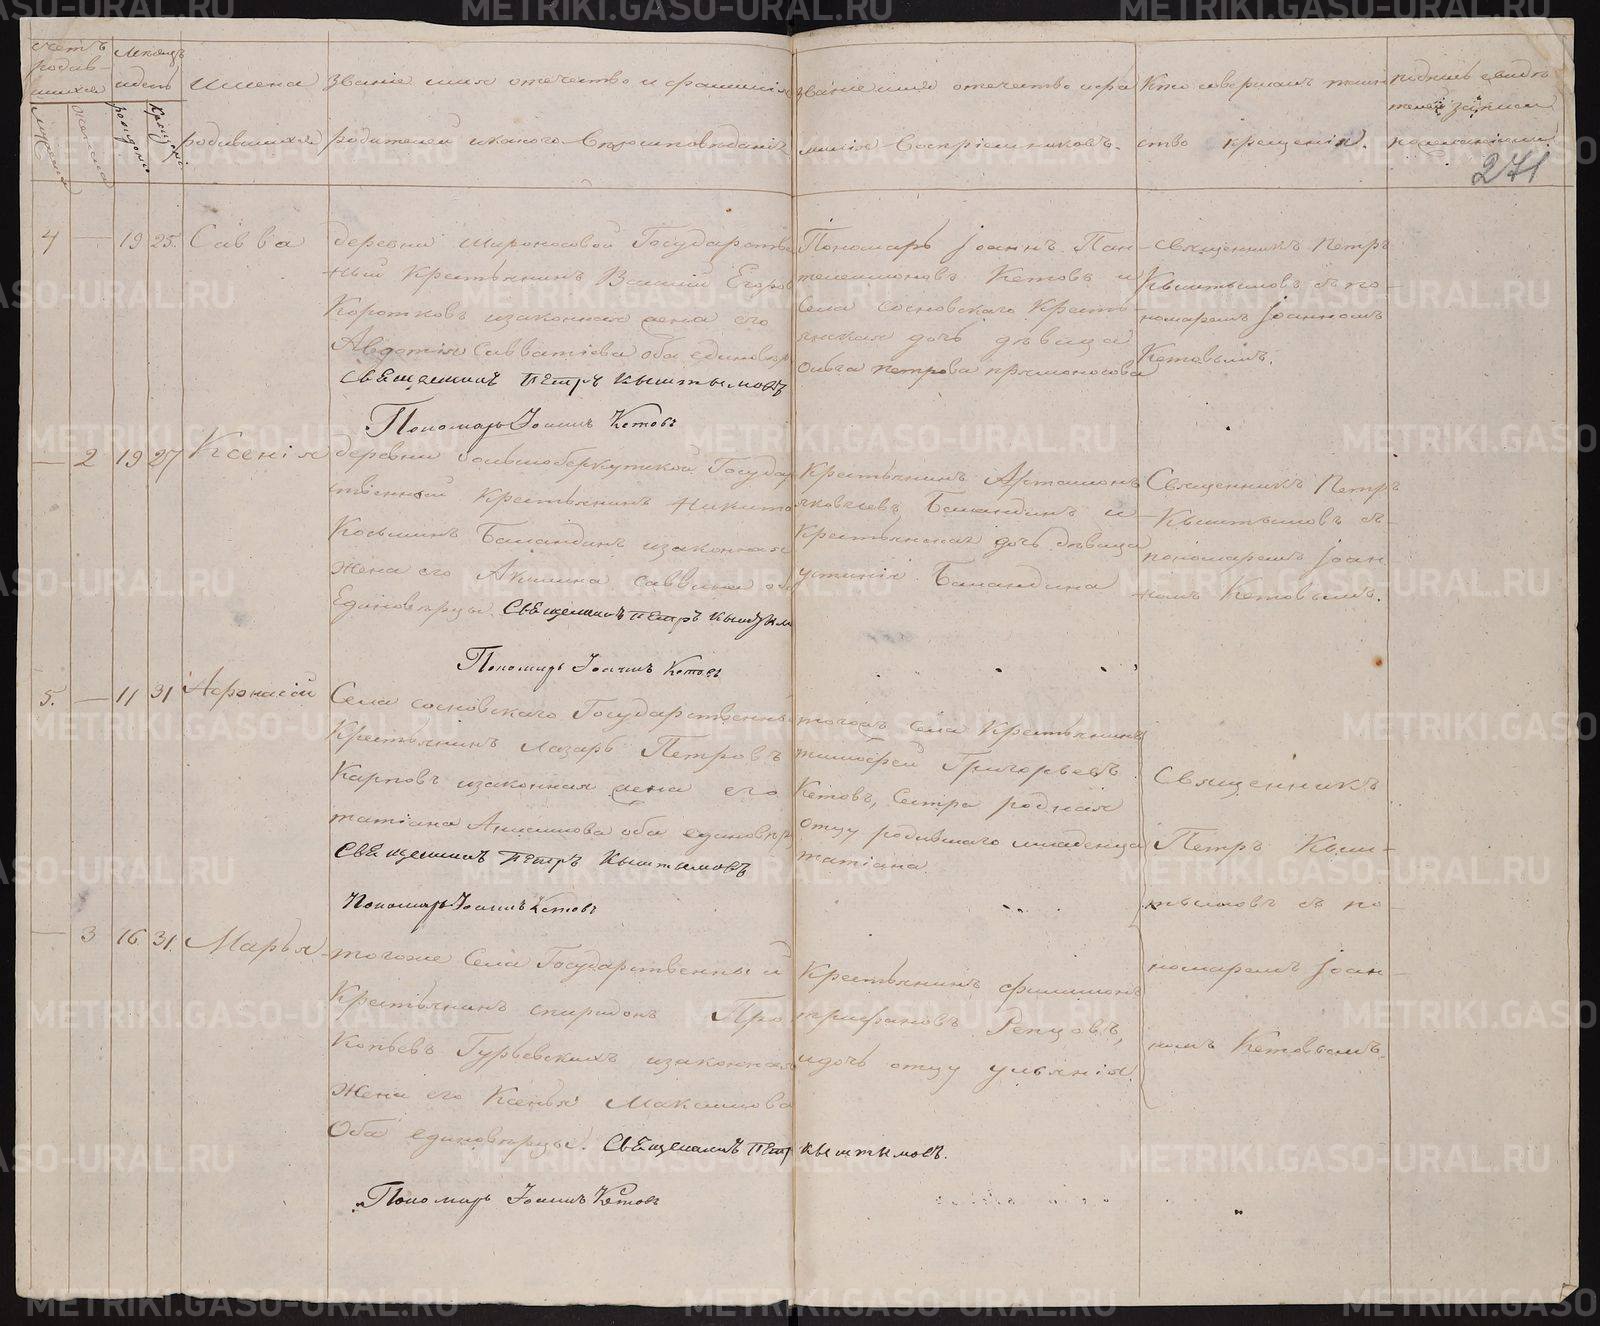 счетъ родившихся
мужеска
женска
Месяцъ и день
рожденiя
крещенiя
имена
родившихся
Званiе имя отечество и фамилiя
родителей и какого вероисповеданiя
званiе имя отечество и фа
милiя воспрiемниковъ.
Кто совершалъ таин
ство крещенiя.
подпись свидѣ
телей записи
271
4 — 19 25. Савва
деревни Широносовой Государствен
ный Крестьянинъ Василiй Егоровъ
Коротковъ изаконная жена его
Авдотiя Савватiева оба единовѣр
Священникъ Петръ Кыштымовъ
Пономарь Iоаннъ Кетовъ
Пономарь Iоаннъ Пан-
телеимоновъ Кетовъ и
Села сосновскаго Кресть-
янская дочь дѣвица
Ольга петрова прямоносова
священникъ Петръ
Кыштымовъ съ по-
номаремъ Iоанномъ
Кетовымъ.
— 2 19 27 Ксенiя
деревни Государ
ственный Крестьянинъ Никита
Косминъ Баландинъ изаконная
Жена его Акилина Саввина
Единовѣрцы Священникъ Петръ
Пономарь Iоаннъ Кетовъ
Крестьянинъ Артамонъ
яковлевъ Баландинъ и
Крестьянская дочь дѣвица
устинiя Баландина
Священникъ Петръ
Кыштымовъ съ-
пономаремъ Iоан
номъ Кетовымъ.
5. — 11 31 Афонасiй
Села сосновскаго Государственный
Крестьянинъ Лазарь Петровъ
Карповъ изаконная жена его
татiана оба единовѣр
Священникъ Петръ Кыштымовъ
Пономарь Iоаннъ Кетовъ
тогожъ Села Крестьянинъ
тимофей Григорьевъ
Кетовъ, Сестра родная
отцу родившаго младенца
татiана
Священникъ
Петръ Кыш-
тымовъ съ по-
номаремъ Iоан-
номъ Кетовымъ.
— 3 16 31. Марья
тогоже Села Государственный
Крестьянинъ спиридонъ Про
копьевъ Гурьевскихъ изаконная
Жена его Ксенья Максимова
Оба единовѣрцы. Священникъ Петръ Кыштымовъ.
Пономарь Iоаннъ Кетовъ
Крестьянинъ филимонъ
трифановъ Репцовъ,
идочь отцу ульянiя.
METRIKI.GASO-URAL.RU